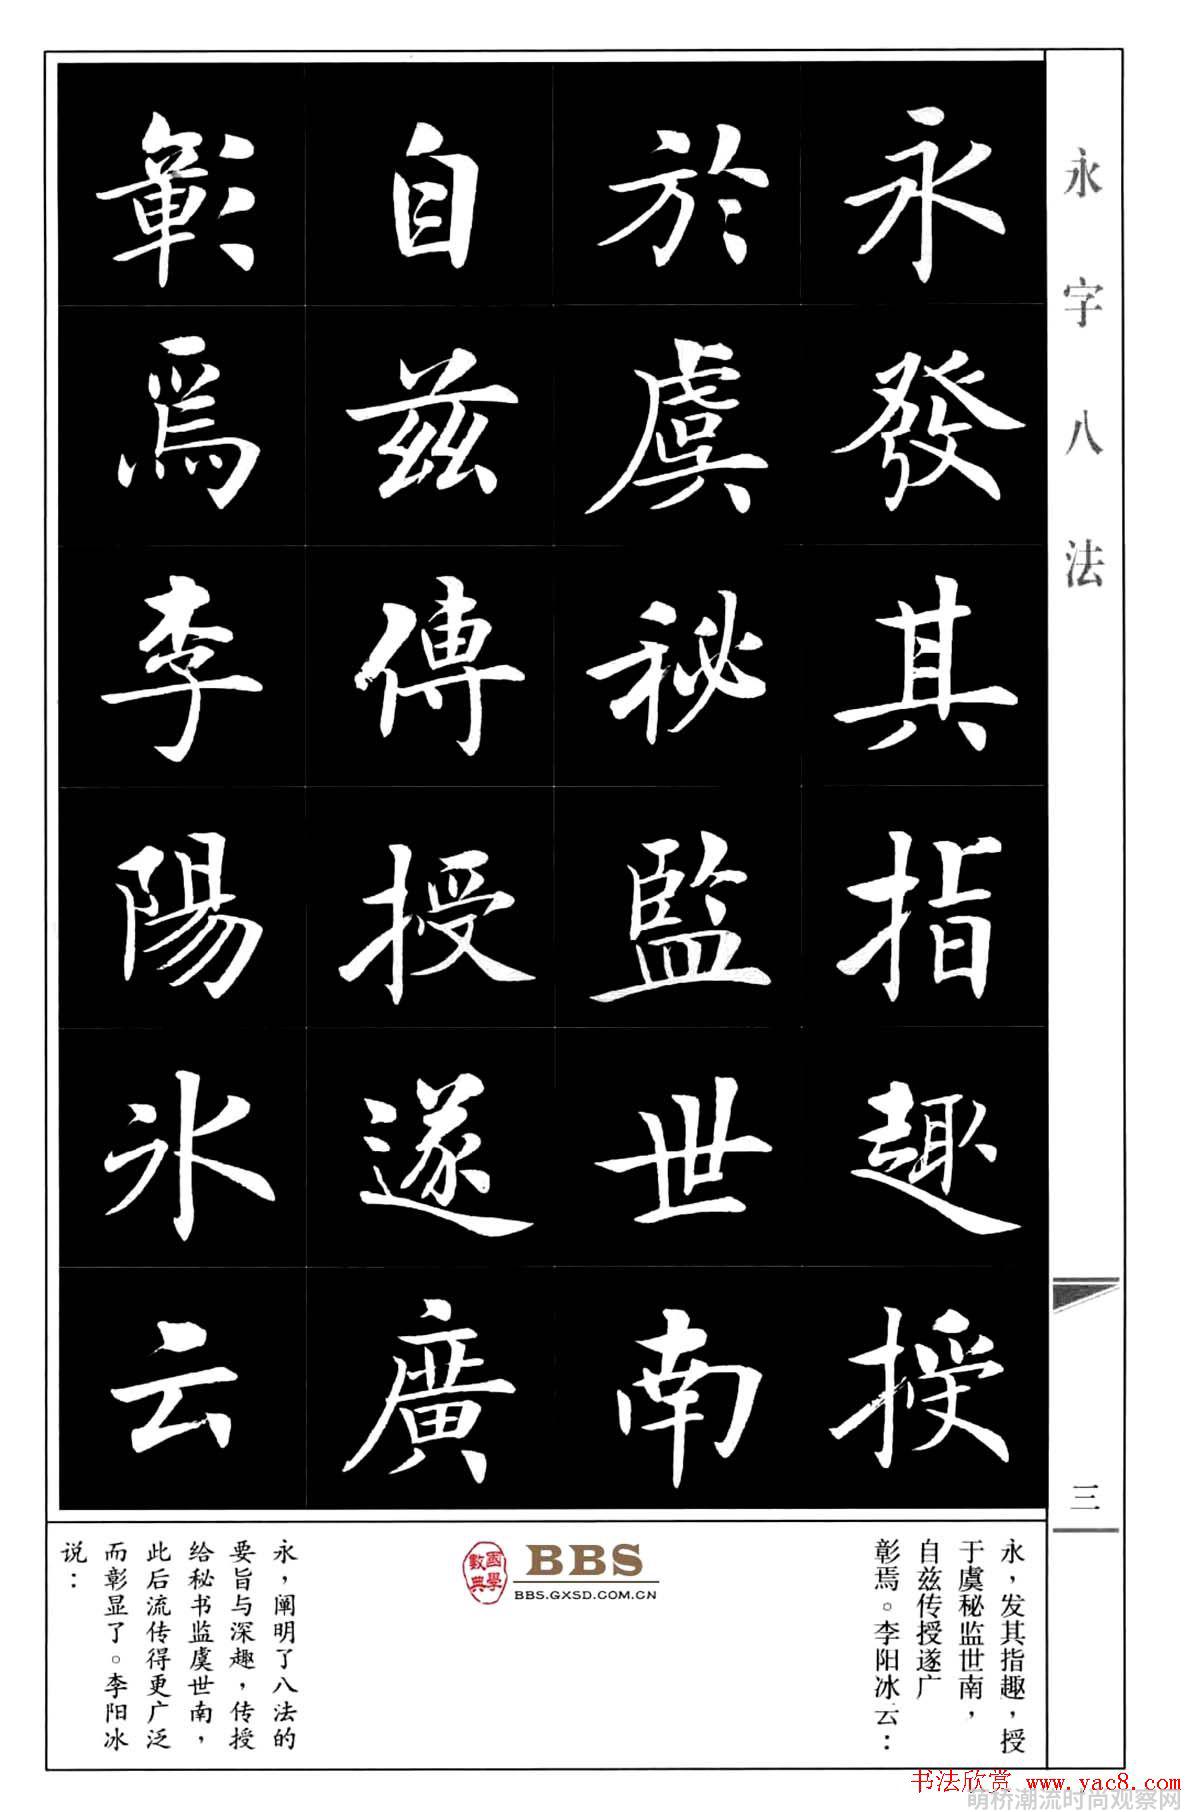 永字八法
三
永發其指趣授
於虞秘監世南
自兹傳授遂廣
彰焉李陽冰云
永，发其指趣，授
于虞秘监世南，
自兹传授遂广
彰焉。李阳冰云：
國學數典
BBS
BBS.GXSD.COM.CN
永，阐明了八法的
要旨与深趣，传授
给秘书监虞世南，
此后流传得更广泛
而彰显了。李阳冰
说：
书法欣赏 www.yac8.com
萌桥潮流时尚观察网